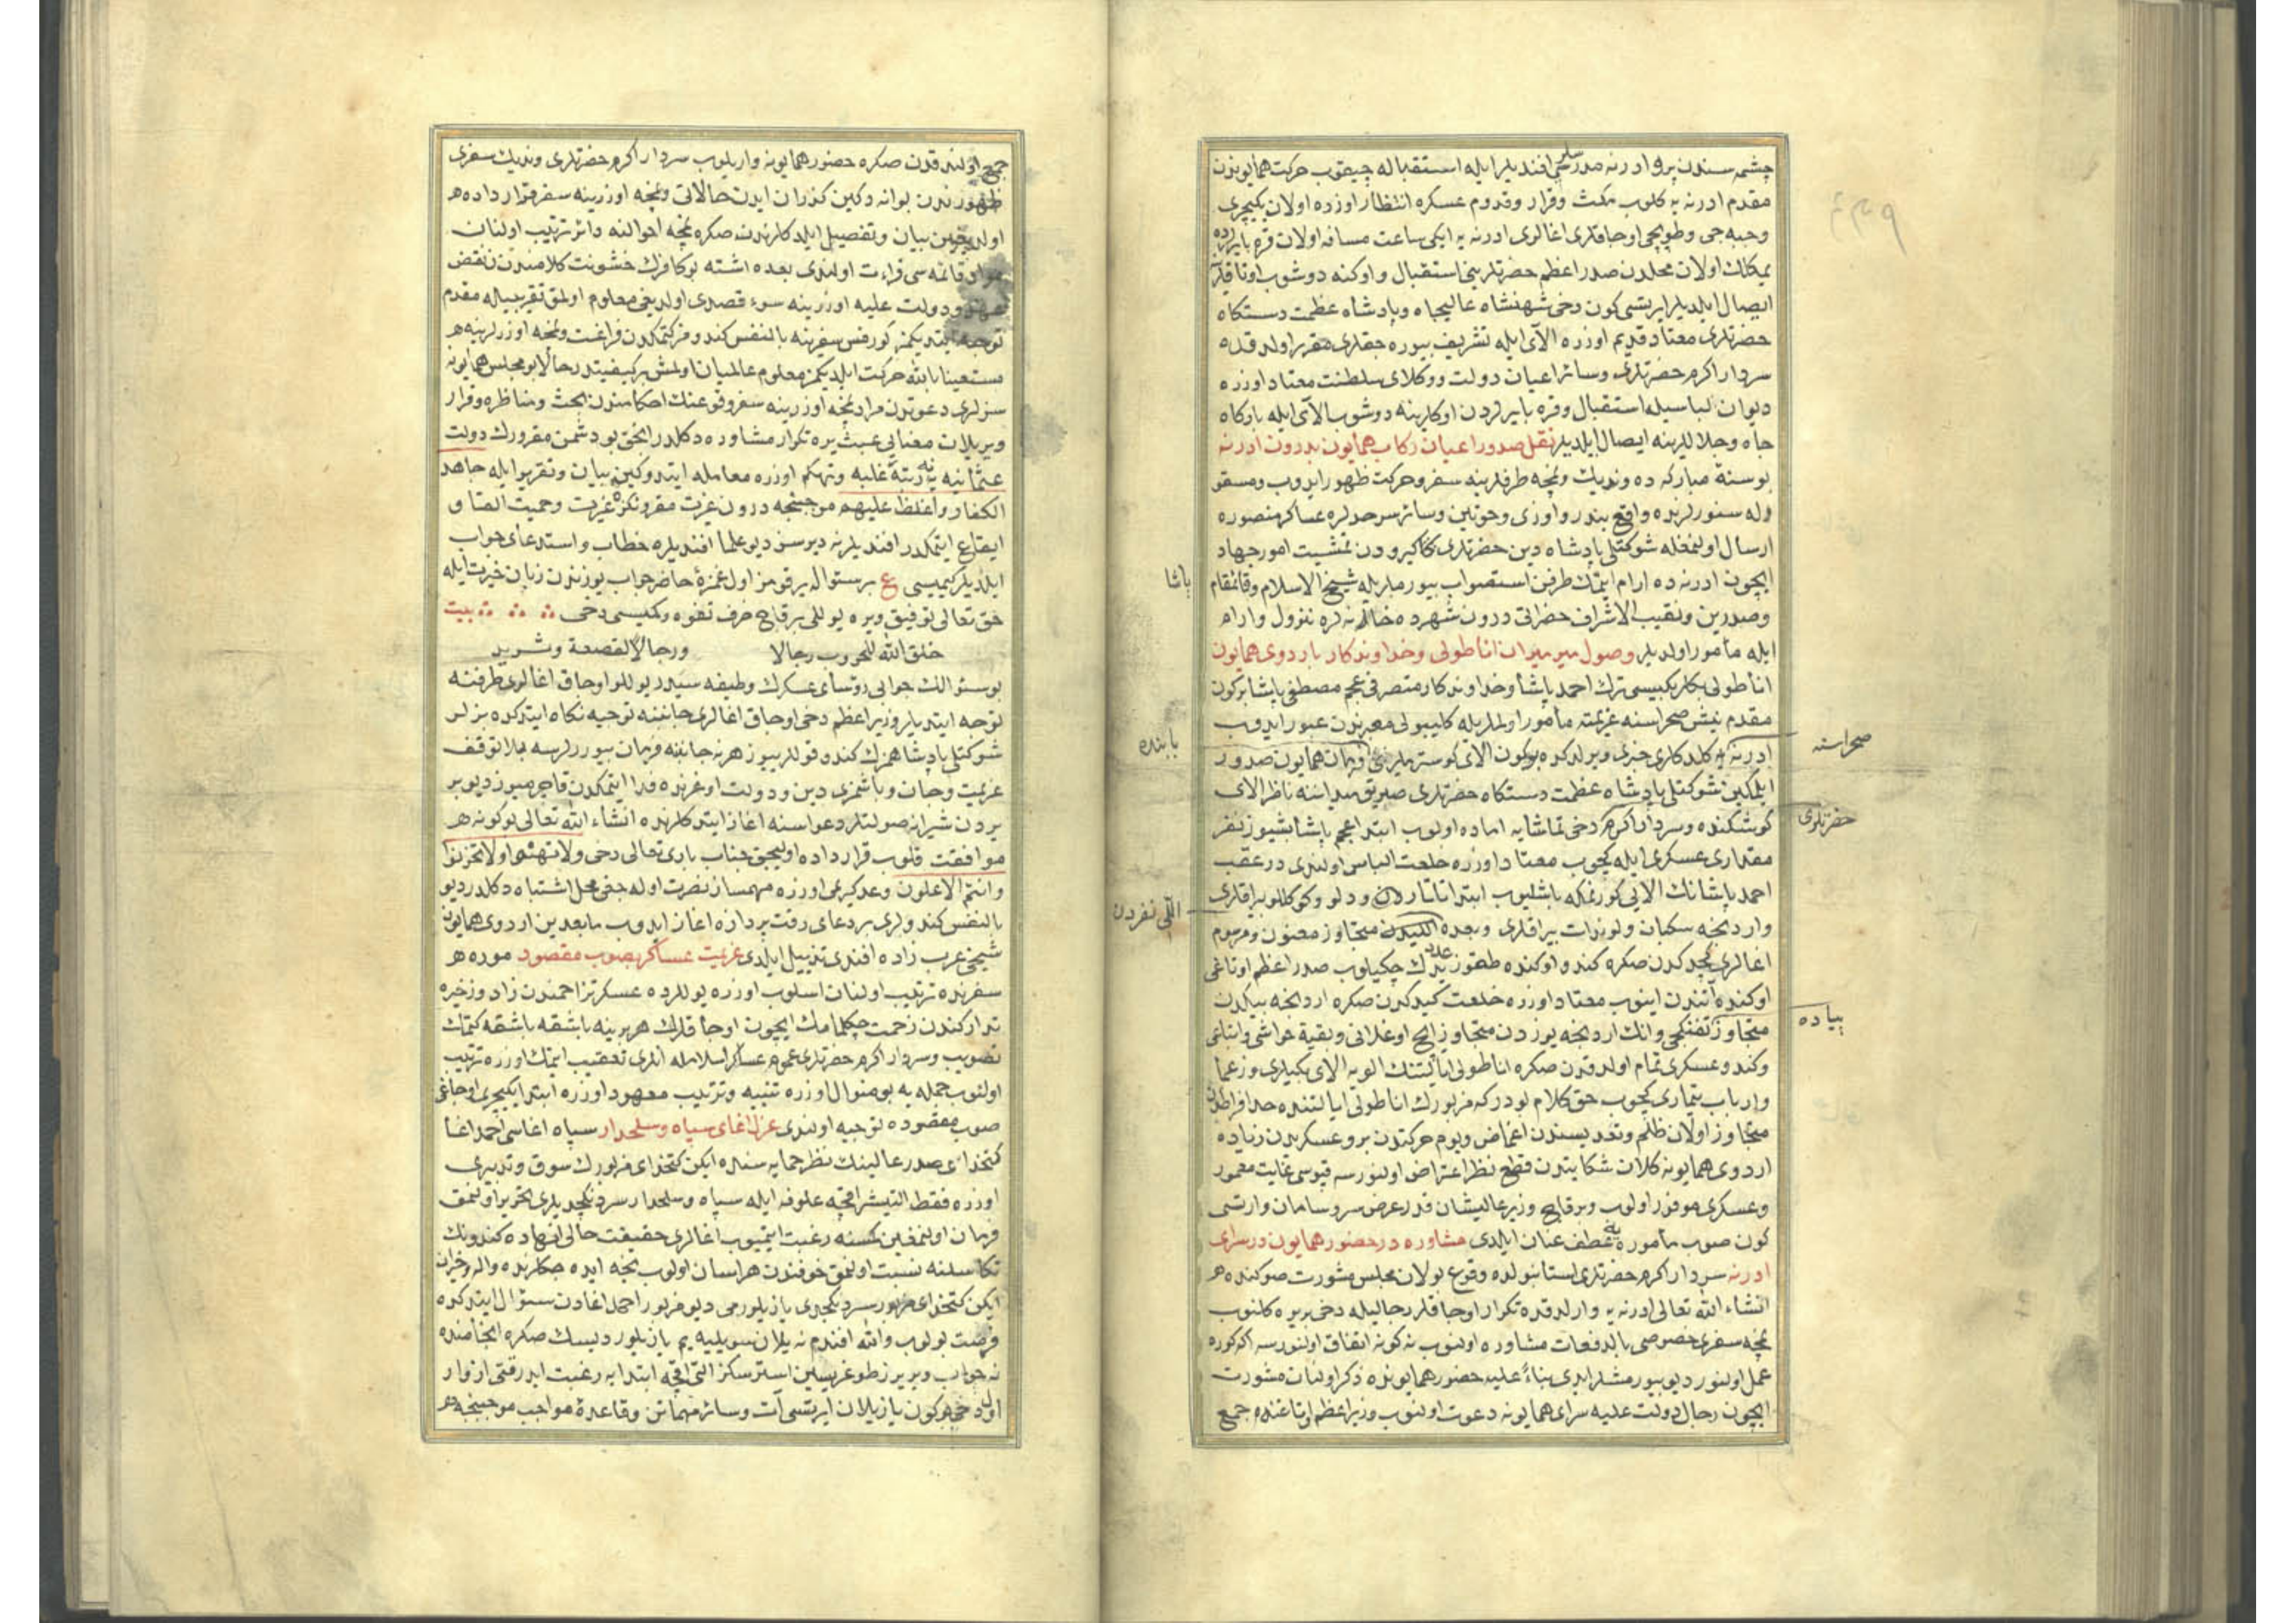 چشمه سندن برو ادرنه مدرسلری افندیلر ایله استقباله چیقوب حرکت همایوندن
مقدم ادرنه یه کلوب مکث وقرار وقدوم عسکره انتظار اوزره اولان یکیچری
وجبه جی وطوپجی اوجاقلری اغالری ادرنه یه ایکی ساعت مسافه اولان قره بایرده
یمکلک اولان محلدن صدر اعظم حضرتلرینی استقبال و اوکنه دوشوب اوتاقلرینه
ایصال ایلدیلر ایرتسی کون دخی شهنشاه عالیجاه وپادشاه عظمت دستکاه
حضرتلری معتاد قدیم اوزره الای ایله تشریف بیوره جقلری مقرر اولدقده
سردار اکرم حضرتلری وسائر اعیان دولت ووکلای سلطنت معتاد اوزره
دیوان لباسیله استقبال وقره بایردن اوکلرینه دوشوب الای ایله بارکاه
جاه وجلاللرینه ایصال ایلدیلر نقل صدور اعیان رکاب همایون بدرون ادرنه
بو سنهٔ مبارکه ده وندیك ونمچه طرفلرینه سفر وحرکت ظهور ایدوب ومسقو
وله سنورلرنده واقع بندر واوزی وخوتین وسائر سرحدلره عساکر منصوره
ارسال اولنمغله شوکتلو پادشاه دین حضرتلری کاکیرودن تمشیت امور جهاد
ایچون ادرنه ده ارام ایتمك طرفن استصواب بیورملریله شیخ الاسلام وقائمقام
پاشا
وصدرین ونقیب الاشراف حضراتی درون شهرده خانه لره نزول وارام
ایله مأمور اولدیلر وصول میرمیران اناطولی وخداوندکار باردوی همایون
اناطولی بکلربکیسی ترك احمد پاشا وخداوندکار متصرفی عجم مصطفی پاشا برکون
مقدم نیش صحراسنه عزیمته مأمور اولملریله کلیبولی معبرندن عبور ایدوب
صحراسنه
بابنده
ادرنه یه کلدکلری خبری ویرلدکده بوکون الای کوستریلر فرمان همایون صدور
ایلمکین شوکتلو پادشاه عظمت دستکاه حضرتلری صیریق میداننه ناظر الای
کوشکنده وسردار اکرم دخی تماشایه اماده اولوب ابتدا عجم پاشا بشیوز نفر
حضرتلری
مقداری عسکری ایله کچوب معتاد اوزره خلعت الباس اولندی در عقب
احمد پاشانك الایی کورنمکه باشلیوب ابتدا تاتاردن ودلو وکوکللو بیراقلری
اللی نفردن
واردنجه سکبان ولوندات بیراقلری وبعده اللیدن متجاوز معنون ومرسوم
اغالری کچدکدن صکره کندو اوکنده طقوز عدد یدك چکیلوب صدر اعظم اوتاغی
اوکنده آتندن اینوب معتاد اوزره خلعت کیدکدن صکره اردنجه بیکدن
پیاده
متجاوز تفنکچی وانك اردنجه یوزدن متجاوز ایچ اوغلانی وبقیهٔ حواشی واتباعی
وکندو عسکری تمام اولدقدن صکره اناطولی ایالتنك الویه الای بکلری وزعما
وارباب تیماری کچوب حق کلام بودر که مزبورك اناطولی ایالتنده حد افراطدن
متجاوز اولان ظلم وتعدیسندن اغماض ویوم حرکتدن برو عسکرندن زیاده
اردوی همایونه کلان شکایتدن قطع نظر اعتراض اولنورسه قپوسی غایت معمور
وعسکری موفور اولوب وبرقاچ وزیر عالیشان قدر عرض سر وسامان وارتسی
کون صوب مأموره یه عطف عنان ایلدی مشاوره در حضور همایون در سرای
ادرنه سردار اکرم حضرتلری استانبولده وقوع بولان مجلس مشورت صوکنده
انشاء الله تعالی ادرنه یه وارلدقده تکرار اوجاقلر رجالیله دخی بریره کلنوب
نمچه سفری خصوصی بالدفعات مشاوره اولنوب نه کونه اتفاق اولنورسه اکا کوره
عمل اولنور دیو بیورمشلر ایدی بناءً علیه حضور همایونده ذکر اولنان مشورت
ایچون رجال دولت علیه سرای همایونه دعوت اولنوب وزیر اعظم اوتاغنده جمع
جمع اولندقدن صکره حضور همایونه واریلوب سردار اکرم حضرتلری وندیك سفری
ظهورندن بوانه دکین کذران ایدن حالاتی ونمچه اوزرینه سفر قرار داده
اولدیغین بیان وتفصیل ایلدکلرندن صکره نمچه احوالنه دائر ترتیب اولنان
قائمه سی قراءت اولندی بعده اشته بو کافرك خشونت کلامندن نقض
عهد ودولت علیه اوزرینه سوء قصدی اولدیغی معلوم اولمق تقریبیله مقدم
توجه ایتدیکمز کورفس سفرینه بالنفس کندومز کتمکدن فراغت ونمچه اوزرلرینه
مستعینا بالله حرکت ایلدیکمز معلوم عالمیان اولمش برکیفیتدر حالا بو مجلس همایونه
سزلری دعوتدن مراد نمچه اوزرینه سفر وقوعنك احکامندن بحث ومناظره وقرار
ویریلان معنایی عبث یره تکرار مشاوره دکلدر انجق بو دشمن مغرورك دولت
عثمانیه یه نه رتبه غلبه وتهکم اوزره معامله ایتدوکین بیان وتقریر ایله جاهد
الکفار واغلظ علیهم موجبنجه درون غیرت مقرونکزه غیرت وحمیت القا و
ایقاع ایتمکدر افندیلر نه دیرسز دیو علما افندیلره خطاب واستدعای جواب
ایلدیلر کیمیسی ع برسؤاله یرقومز اول غمزهٔ حاضر جواب یوزندن زبان حیرت ایله
حق تعالی توفیق ویره یوللو برقاچ حرف تفوه وکمیسی دخی بیت
خلق الله للحروب رجالا ورجالا لقصعة وثرید
بوسؤالك جوابی رؤسای عسکرك وظیفه سیدر یوللو اوجاق اغالری طرفنه
توجه ایتدیلر وزیر اعظم دخی اوجاق اغالری جانبنه توجیه نکاه ایتدکده بزلر
شوکتلو پادشاهمزك کندو قوللریيوز هر نه جانبه فرمان بیوررلرسه بلا توقف
عزیمت وجان وباشمزی دین ودولت اوغرنده فدا ایتمکدن قاچمیوز دیو بر
بردن شیرانه صولتلر دعواسنه اغاز ایتدکلرنده انشاء الله تعالی بوکونه
موافقت قلوب قرار داده اولیجق جناب باری تعالی دخی ولا تهنوا ولا تحزنوا
وانتم الاعلون وعد کریمی اوزره مهمساز نصرت اوله جغی محل اشتباه دکلدر دیو
بالنفس کندولری بر دعای رقت پردازه اغاز ایدوب مابعدین اردوی همایون
شیخی عرب زاده افندی تذییل ایلدی عزیمت عساکر بصوب مقصود موره
سفرنده ترتیب اولنان اسلوب اوزره یوللرده عسکر تزاحمندن زاد وزخیره
تدارکندن زحمت چکلمامك ایچون اوجاقلرك هر برینه باشقه باشقه کتمك
تصویب وسردار اکرم حضرتلری عموم عساکر اسلامله انلری تعقیب ایتمك اوزره ترتیب
اولنوب جمله یه بومنوال اوزره تنبیه وترتیب معهود اوزره ابتدا یکیچری اوجاغی
صوب مقصوده توجیه اولندی عزل اغای سپاه وسلحدار سپاه اغاسی احمد اغا
کتخدای صدر عالینك نظر حمایه سنده ایکن کتخدای مزبورك سوق وتدبیری
اوزره فقط التیشر اقچه علوفه ایله سپاه وسلحدار سردنکچدیلری تحریر اولنمق
فرمان اولنمغین کسنه رغبت ایتمیوب اغالری حقیقت حالی انهاده کندونك
تکاسلنه نسبت اولنمق خوفندن هراسان اولوب نجه ایده جکلرنده واله وحیران
ایکن کتخدای مزبور سردنکچدی یازیلورمی دیو مزبور احمد اغادن سؤال ایتدکده
فرصت بولوب والله افندم نه یلان سویلیه یم یازیلور دیسك صکره انجامنده
نه جواب ویریرز طوغریسین استرسکز التی اقچه ابتدایه رغبت ایدر قتی ازوار
اول دخی برکون یازیلان ایرتسی آت وسائر مهماتن وقاعدهٔ مواجب موجبنجه